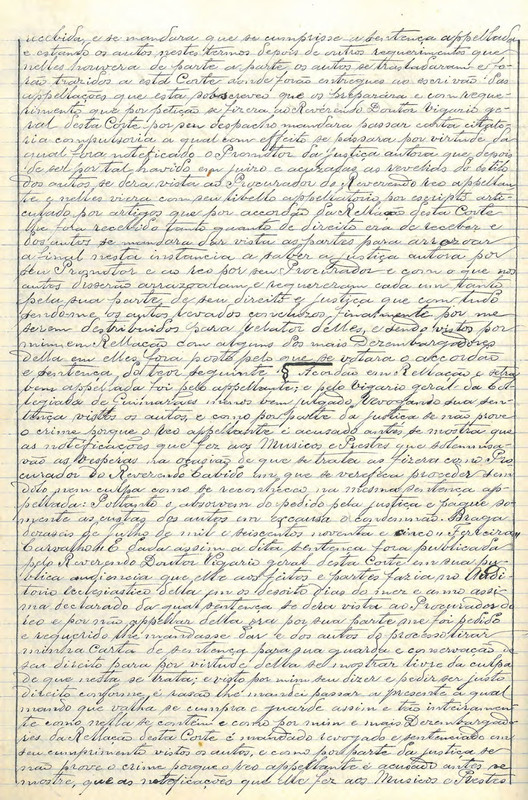 recebida, e se mandara que se cumprisse a sentença appellada
e estando os autos nestes termos depois de outros requerimentos que
nelles houvera de parte a parte, os autos se trasladaram e fo-
rão trazidos a esta Corte aonde forão entregues ao escrivão das
appellações que esta sobscreveo que os preparára e com reque-
rimento que por petição se fizera ao Reverendo Doutor Vigario ge-
ral desta Côrte por seu despacho mandara passar carta citato-
ria compulsoria a qual com effeito se passara por virtude da
qual fora noteficado o Promotor da justiça autora que, depois
de ser por tal havido em juizo e acuzadas as revelias do estilo
dos autos, se dera vista ao Procurador do Reverendo reo appellan-
te e nelles viera com seu libello appellatorio por escripto arti-
culado por artigos que por accordão da Rellação desta Corte
lhe fora recebido tanto quanto de direito era de receber e
dos autos se mandara dar vista ás partes para arrazoar
a final nesta instancia a saber a justiça autora por
seu Promotor e ao reo por seu Procurador e com o que nos
autos disserão arrazoalam, e requereram cada um tanto
pela sua parte de seu direito e justiça que com tudo
sendome os autos levados concluzos, finalmente por me
serem destribuidos para relator delles, e sendo vistos por
mim em Rellação com alguns dos mais Dezembargadores
della em elles fora posto pelo que se votara o accordão
e sentença do teor seguinte. § Acordão em Rellação, e
bem appellado foi pelo appellante; e pelo Vigario geral da Col-
legiada de Guimarães menos bem julgado, revogando sua sen-
tença vistos os autos, e como por parte da justiça se não prove
o crime porque o reo appellante é acusado antes se mostra que
as notificações que fez aos Musicos e Prestes que solemnisa-
vão as Vesperas na ocazião de que se trata as fizera como Pro-
curador do Reverendo Cabido em que se verefica proceder sem
dolo nem culpa como se reconheceo na mesma sentença ap-
pellada: Portanto o absorvem do pedido pela justiça e
mente as custas dos autos em o condemnão. Braga
dezaseis de Julho de mil e seiscentos noventa e cinco "Ferreira"
Carvalho. E dada assim a dita sentença fora publicada
pelo Reverendo Doutor Vigario geral desta Corte em sua pu-
blica audiencia que elle aos feitos e partes fazia no Audi-
torio ecclesiastico della em os desoito dias do mez e anno assi-
ma declarado da qual sentença se dera vista ao Procurador do
reo e por não appellar della era por sua parte me foi pedido
e requerido lhe mandasse dar e dos autos do processo tirar
minha Carta de sentença para sua guarda e concervação de
seu direito para por virtude della se mostrar livre da culpa
de que nesta se trata; e visto por mim seu dizer e pedir ser justo
direito conforme, é rasão lhe mandei passar a presente a qual
mando que valha se cumpra e guarde assim e tão inteiramen-
te como nella se contem e como por mim e mais Dezembargado-
res da Rellação desta Corte é mandado revogado e sentenciado em
seu cumprimento vistos os autos, e como por parte da justiça se
não prove o crime porque o reo appellante é acusado antes se
mostre, que as noteficações que elle fez aos Musicos e Prestes